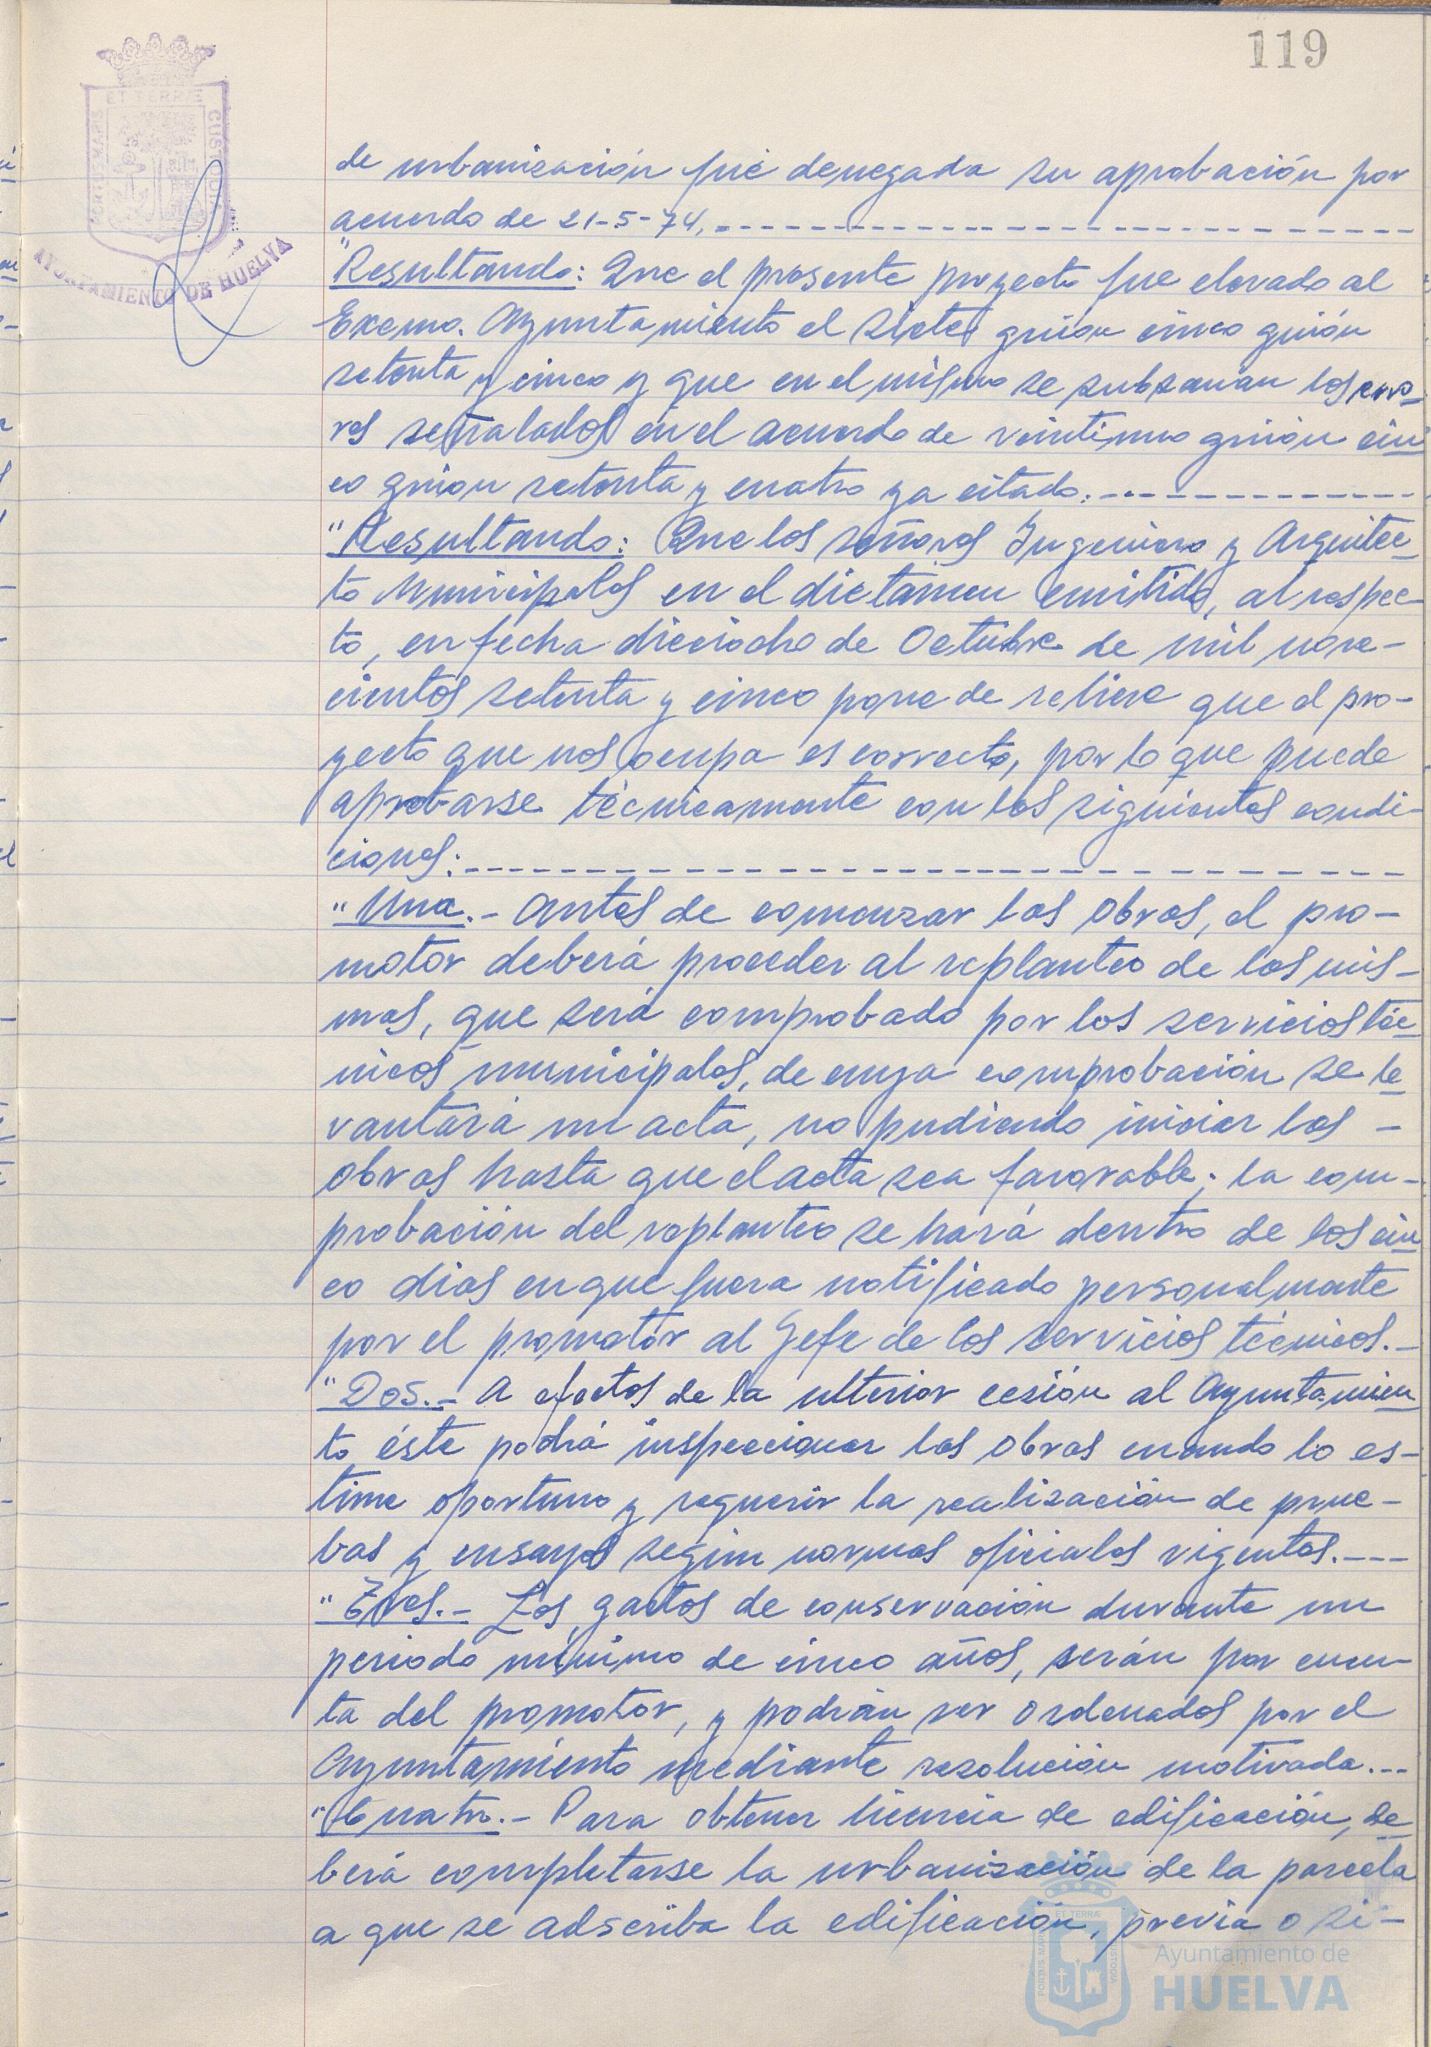 119
PORTUS MARIS ET TERRÆ CUSTODIA
AYUNTAMIENTO DE HUELVA
de urbanización fué denegada su aprobación por
acuerdo de 21-5-74.
"Resultando: Que el presente proyecto fue elevado al
Excmo. Ayuntamiento el siete guion cinco guión
setenta y cinco y que en el mismo se subsanan los erro-
res señalados en el acuerdo de veintiuno guión cin
co guion setenta y cuatro ya citado.
"Resultando: Que los señores Ingeniero y Arquitec-
to Municipales en el dictamen emitido, al respec-
to, en fecha dieciocho de Octubre de mil nove-
cientos setenta y cinco pone de relieve que el pro-
yecto que nos ocupa es correcto, por lo que puede
aprobarse técnicamente con las siguientes condi-
ciones:
"Una.- Antes de comenzar las obras, el pro-
motor deberá proceder al replanteo de las mis-
mas, que será comprobado por los servicios téc-
nicos municipales, de cuya comprobación se le
vantará un acta, no pudiendo iniciar las -
obras hasta que el acta sea favorable; la com-
probación del replanteo se hará dentro de los cin
co dias en que fuera notificado personalmente
por el promotor al Gefe de los servicios técnicos.-
"Dos.- A efectos de la ulterior cesión al Ayuntamien
to éste podrá inspeccionar las obras cuando lo es-
time oportuno y requerir la realización de prue-
bas y ensayos según normas oficiales vigentes.---
"Tres.- Los gastos de conservación durante un
periodo mínimo de cinco años, serán por cuen-
ta del promotor, y podrán ser ordenados por el
Ayuntamiento mediante resolución motivada...
"Cuatro.- Para obtener licencia de edificación, de
berá completarse la urbanización de la parcela
a que se adscriba la edificación, previa o si-
PORTUS MARIS ET TERRÆ CUSTODIA
Ayuntamiento de
HUELVA